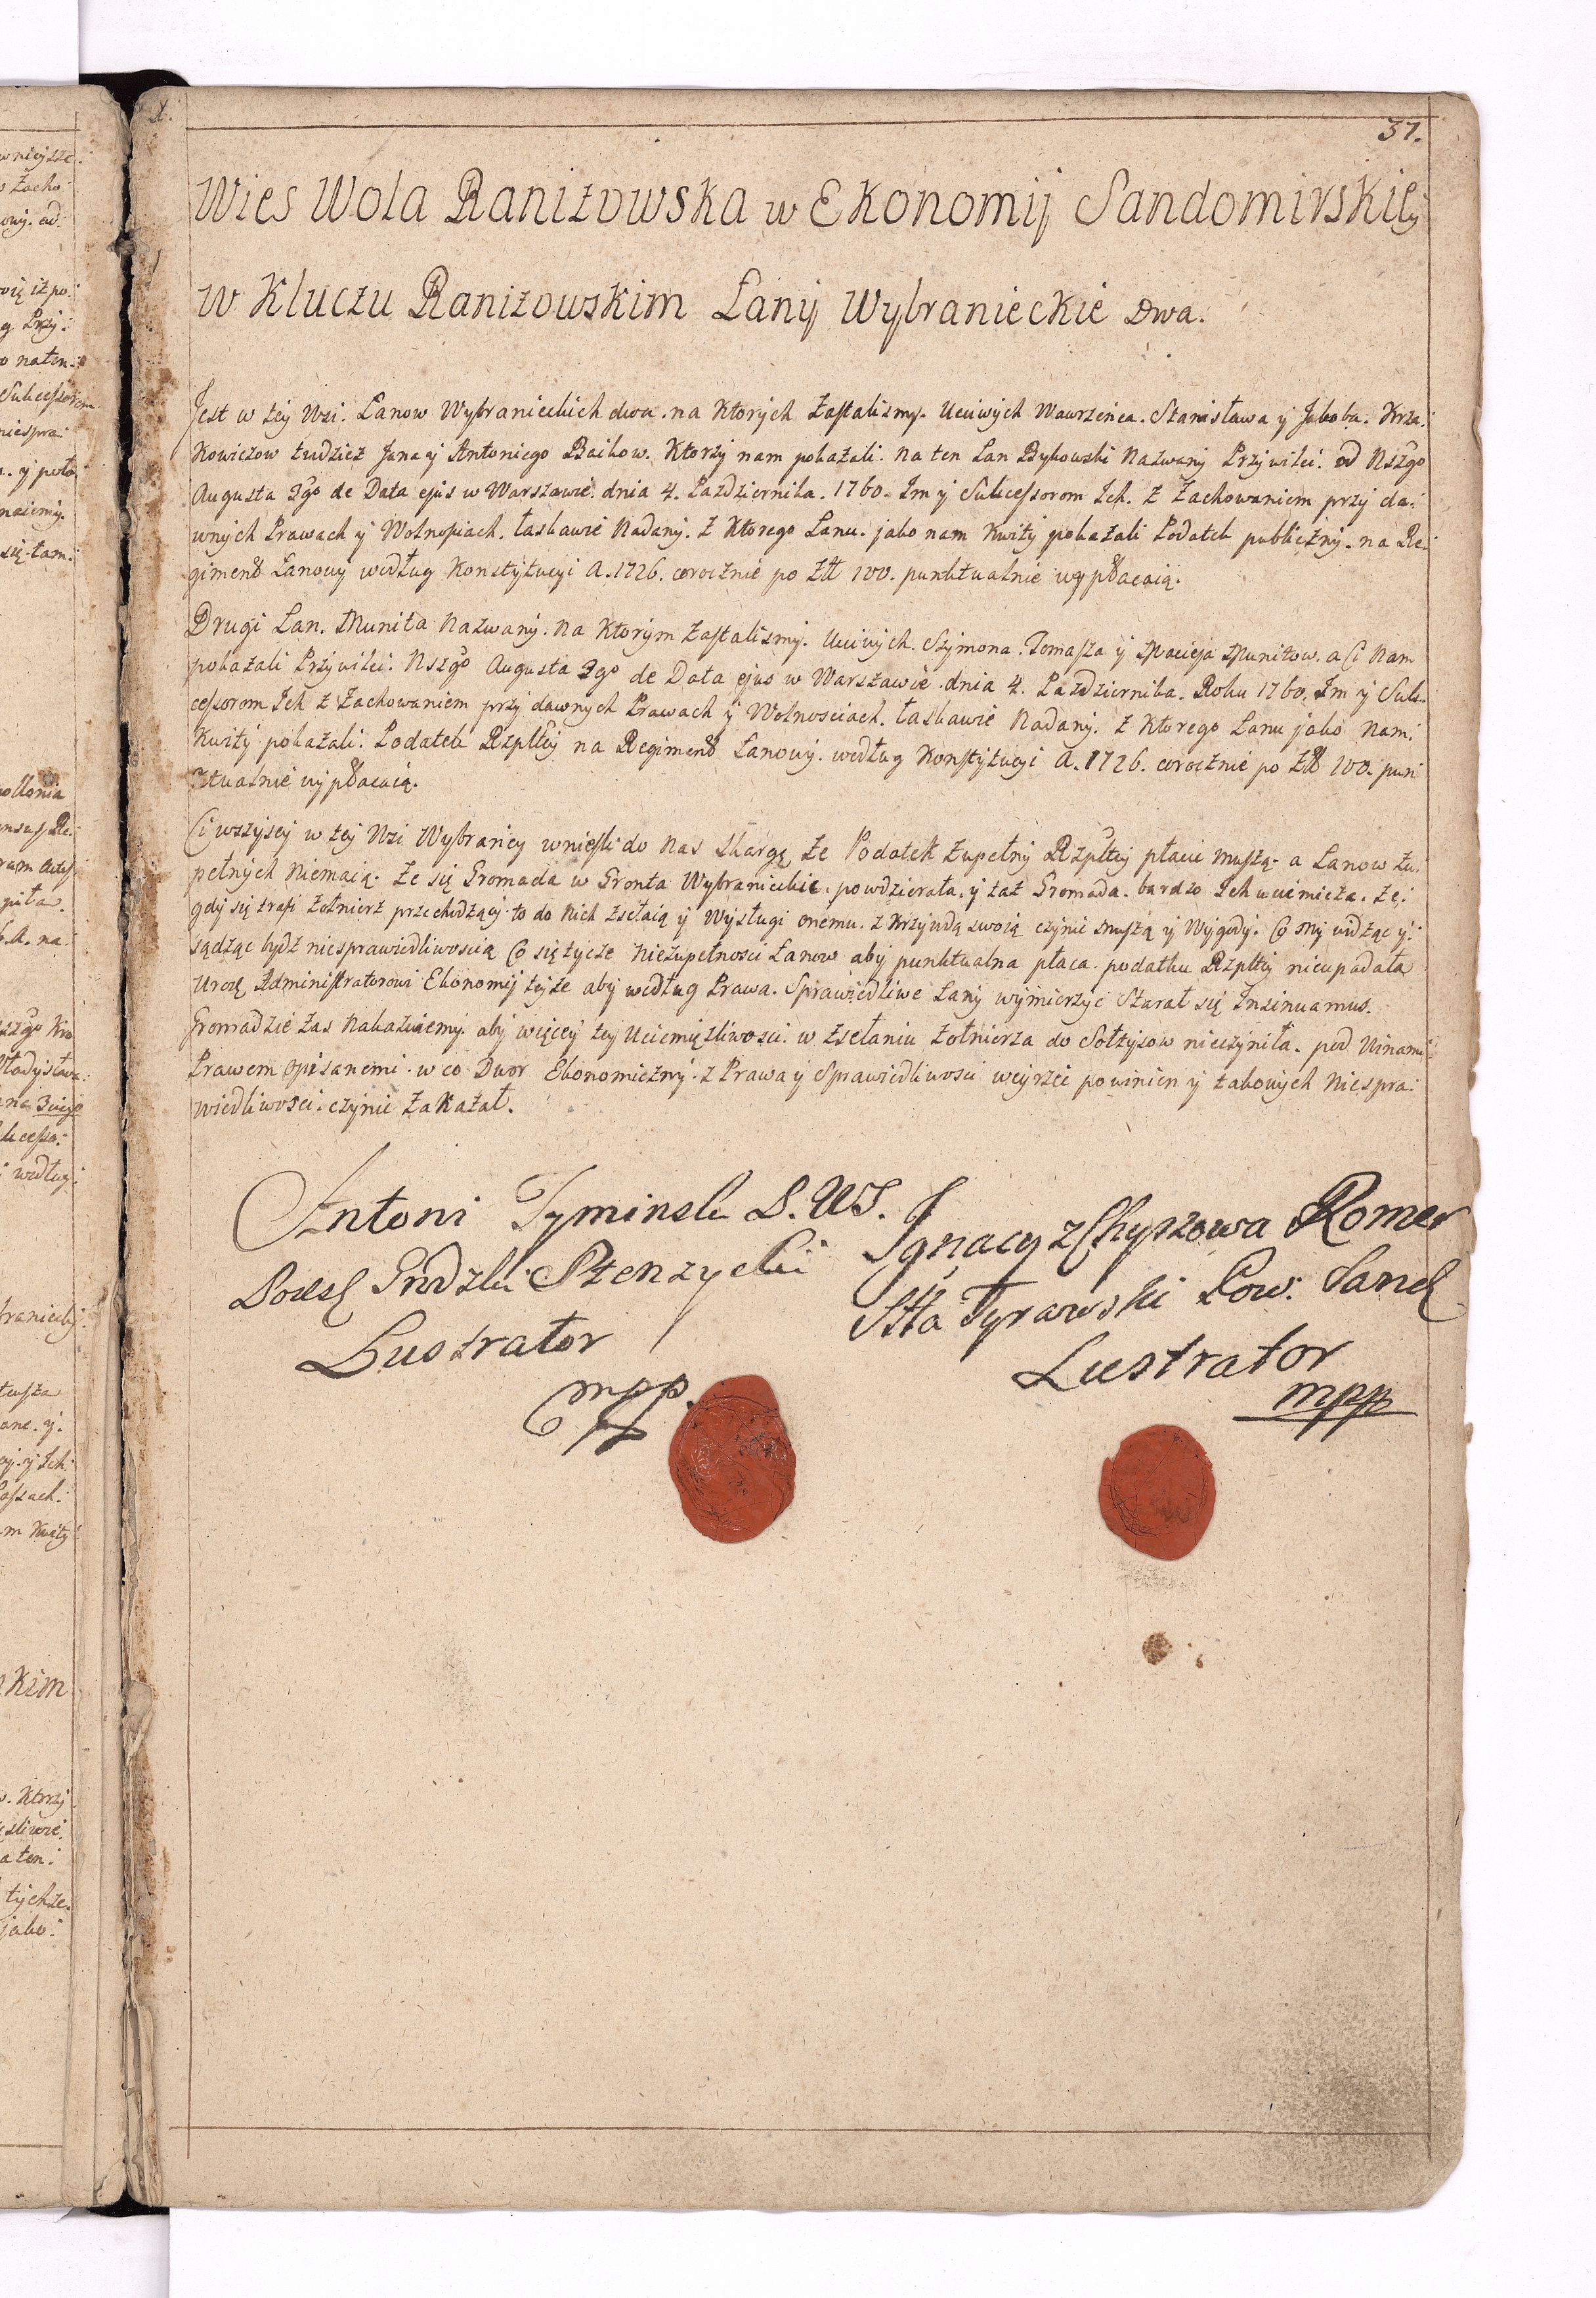 37.
Wies Wola Raniżowska w Ekonomij Sandomirskiey
w Kluczu Raniżowskim Łany Wybranieckie Dwa.
Jest w tey Wsi. Łanow Wybranieckich dwa. na Ktorych Zastalismy. Uciwych Wawrzeńca. Stanisława y Jakoba. Krza:
Kowiczow tudzież Jana y Antoniego Baikow. Ktorzy nam pokazali. na ten Łan Bykowski Nazwany Przywilei. od Nszgo
Augusta 3go de Data ejus w Warszawie. dnia 4. Pazdziernika. 1760. Im y Sukcessorom Ich. z Zachowaniem przy da:
wnych Prawach y Wolnosciach. łaskawie Nadany. z Ktorego Łanu. jako nam Kwity pokazali Podatek publiczny. na Re:
giment Łanowy według Konstytucyi A. 1726. corocznie po Złt 100. punktualnie wypłacaią.
Drugi Łan. Munita Nazwany. na Ktorym Zastalismy. Uciwych. Szymona. Tomasza y Macieja Munitow. a Ci Nam
pokazali Przywilei. Nszgo Augusta 3go de Data ejus w Warszawie. dnia 4. Pazdziernika. Roku 1760. Im y Suk:
cessorom Ich z Zachowaniem przy dawnych Prawach y Wolnosciach. łaskawie Nadany. z Ktorego Łanu jako Nam.
Kwity pokazali. Podatek Rzpltey na Regiment Łanowy. według Konstytucyi A. 1726. corocznie po Złt 100. pun
ktualnie wypłacaią.
Ci wszyscy w tey Wsi Wybrańcy wniesli do nas skargę że Podatek zupełny Rzpltey płacic muszą. a Łanow zu:
pełnych niemaią. że się Gromada w Gronta Wybranieckie. powdzierała. y taż Gromada. bardzo Ich uciemięża. że:
gdy się trafi Żołnierz przechodzący. to do nich zsełaią y Wysługi onemu. z krzywdą swoią czynic muszą y Wygody. Co my widząc y:
sądząc bydź niesprawiedliwoscią Co się tycze niezupełnosci Łanow aby punktualna płaca. podatku Rzpltey nieupadała
Urodz. Administratorowi Ekonomij teyże aby według Prawa. Sprawiedliwe Łany wymierzyc Starał się Insinuamus.
Gromadzie zas Nakazuiemy. aby więcey tey Uciemięzliwosci. w zsełaniu Żołnierza do Sołtysow nieczyniła. pod Winami
Prawem opisanemi. w co Dwor Ekonomiczny. z Prawa y Sprawiedliwosci weyrzec powinien y takowych Niespra:
wiedliwosci. czynic Zakazał.
Antoni Tyminski S. W S.
Posesz Grodzki Stenzycki
Lustrator
mpp.
Ignacy z Chyszowa Romer
Stta Tyrawski Pow. Sand
Lustrator
mpp